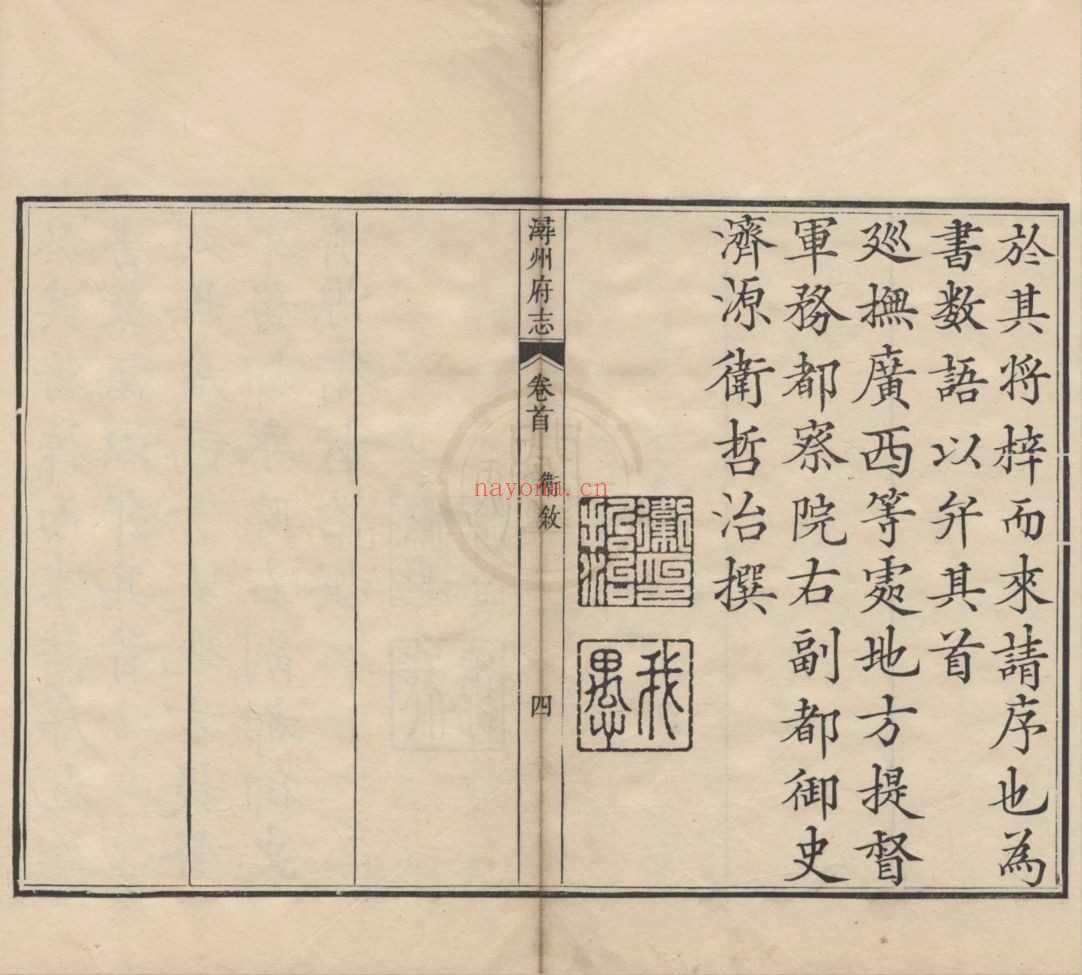 於其将梓而來請序也為
書数語以弁其首
廵撫廣西等處地方提督
軍務都察院右副都御史
濟源衛哲治撰
衛哲治印
我愚
潯州府志
卷首
衛敘
四
nayona.cn